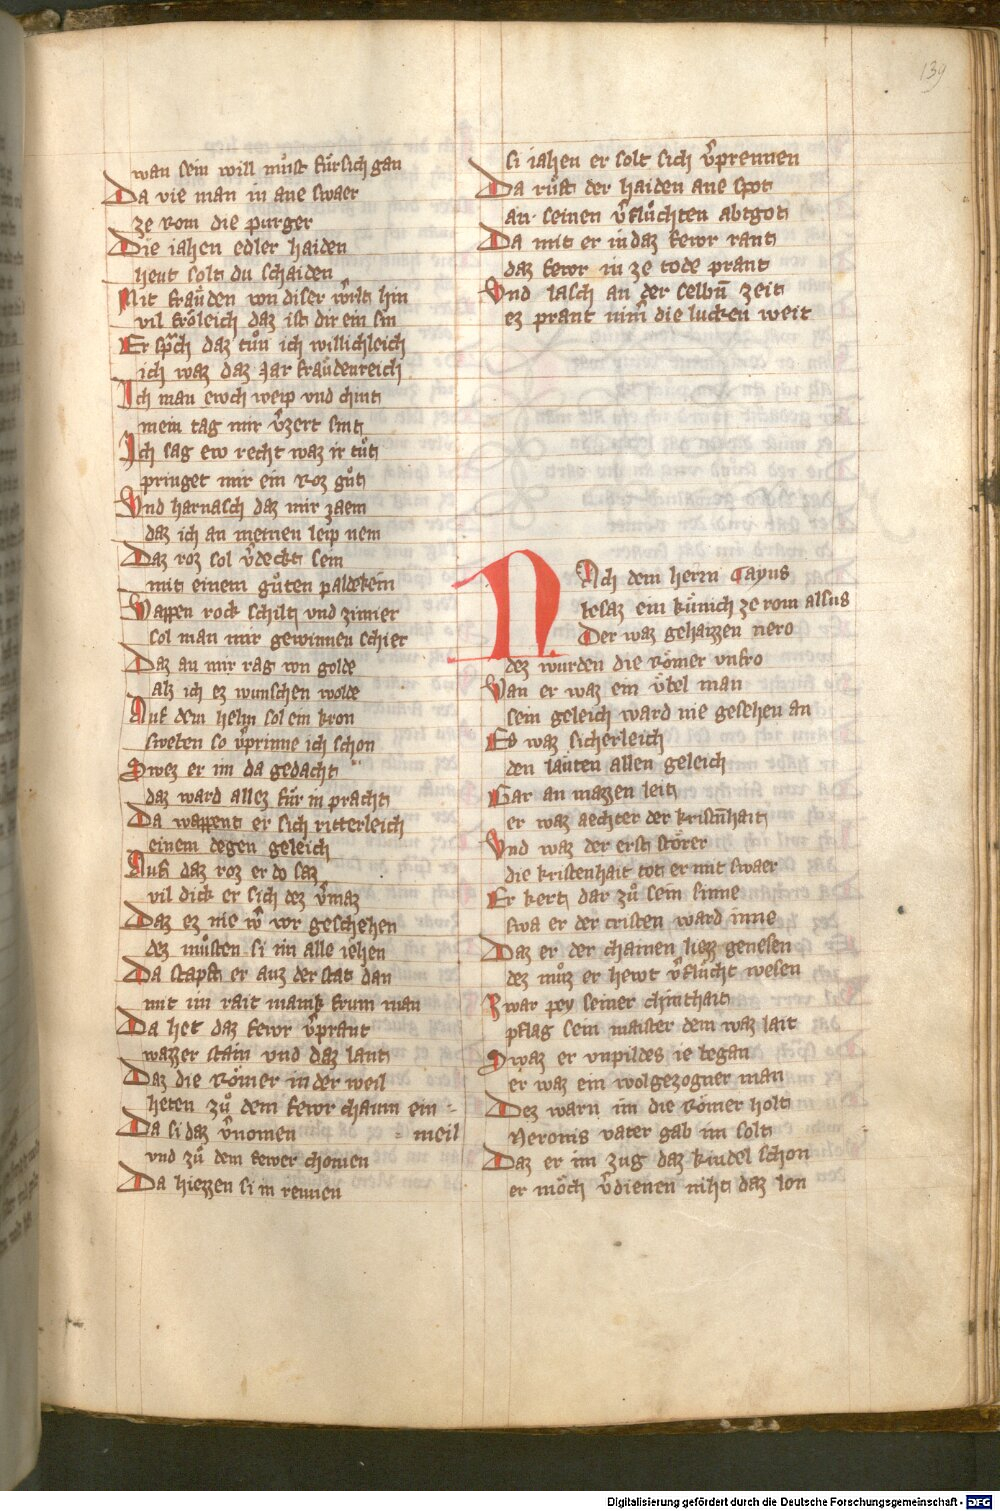 139
wan sein will muͤst fuͤr sich gan
Da vie man in ane swaer
ze Rom die purger
Die iahen edler haiden
heut solt du schaiden
Mit fraͤuden von diser wͤrlt hin
vil froͤleich daz ist dir ein sin
Er sp̄ch daz tuͦn ich willichleich
ich waz daz Jar fraͤudenreich
Ich man ewch weip vnd chint
mein tag mir v̓zert sint
Ich sag ew recht waz ir tuͤt
pringet mir ein Roz guͦt
Vnd harnasch daz mir zaem
daz ich an meinen leip nem
Daz roz sol v̓deckt sein
mit einem guͦten paldekein
Wappen rock schilt vnd zimier
sol man mir gewinnen schier
Daz an mir rag von golde
alz ich ez wunschen wolde
Auf dem helm sol ein kron
sweben so v̓prinne ich schon
Swez er im da gedacht
daz ward allez fuͤr in pracht
Da wappent er sich ritterleich
einem degen geleich
Auf daz roz er do saz
vil dick er sich dez v̓maz
Daz ez nie w̓ vor geschehen
dez muͦsten si im alle iehen
Da stapft er auz der stat dan
mit im rait manik frum man
Da het daz fewr v̓prant
wazzer stain vnd daz lant
Daz die Roͤmer in der weil
heten zuͦ dem fewr chaum ein =
Da si daz v̓nomen = meil
vnd zuͦ dem fewer chomen
Da hiezzen si in rennen
si iahen er solt sich v̓prennen
Da ruͦft der haiden ane spot
an seinen v̓fluͦchten abtgot
Da mit er in daz fewr rant
daz fewr in ze tode prant
Vnd lasch an der selbn̄ zeit
ez prant nim̄ die lucken weit
NAch dem herrn Gayus
besaz ein kuͤnich ze rom alsus
Der waz gehaizzen nero
dez wurden die Roͤmer vnfro
Wan er waz ein v̓bel man
sein geleich ward nie gesehen an
Es waz sicherleich
den laͤuten allen geleich
Gar an mazzen leit
er waz aechter der kristn̄hait
Vnd waz der erst stoͤrer
die kristenhait tot er mit swaer
Er kert dar zuͦ sein sinne
swa er der cristen ward inne
Daz er der chainen liezz genesen
dez muͦz er hewt v̓fluͦcht wesen
Zwar pey seiner chinthait
pflag sein maister dem waz lait
Swaz er vnpildes ie began
er waz ein wolgezogner man
Dez warn im die Roͤmer holt
Neronis vater gab im solt
Daz er im zug daz kindel schon
er moͤch v̓dienen niht daz lon
Digitalisierung gefördert durch die Deutsche Forschungsgemeinschaft - DFG